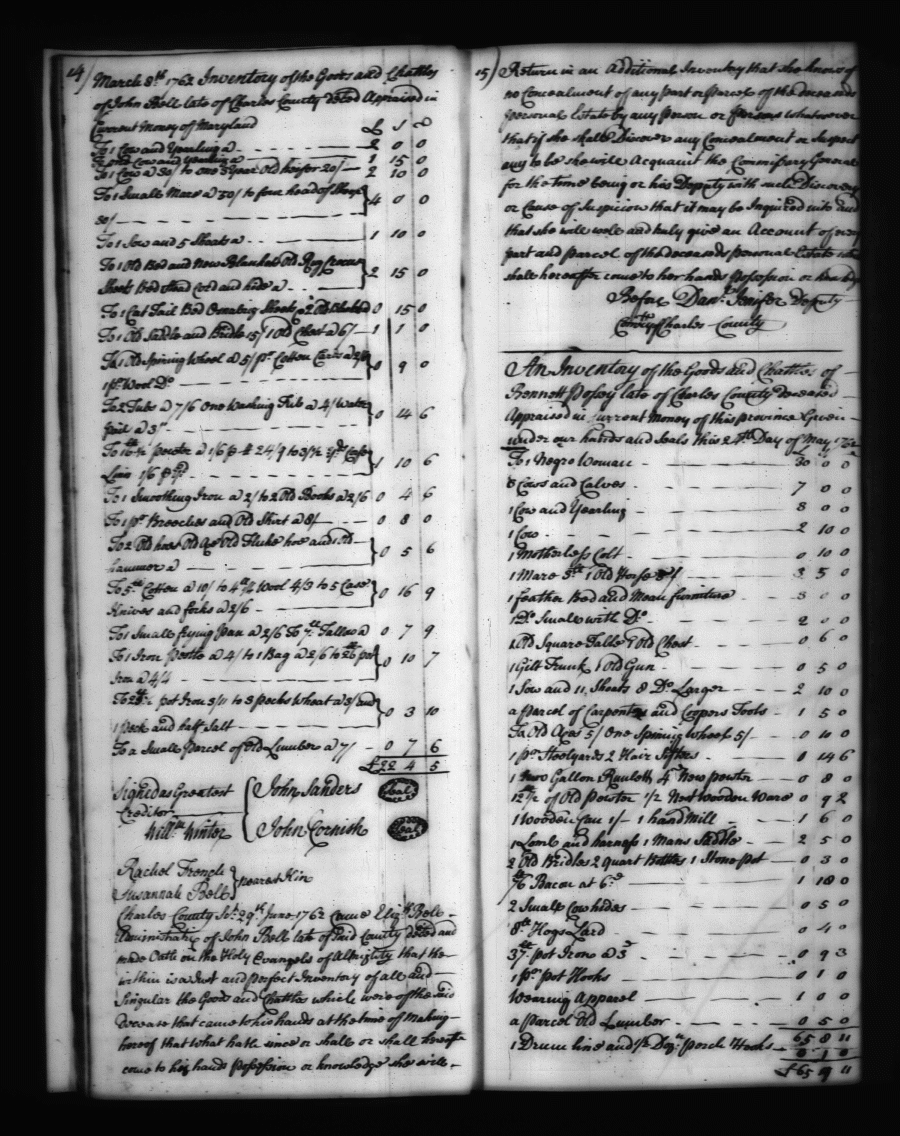 14)
March 8th 1762 Inventory of the Goods and Chattles
of John Bell late of Charles County deced Appraised in
Current Money of Maryland £ S D
To 1 Cow and Yearling a 2 0 0
To one Cow and yearling a 1 15 0
To 1 Cow a 30/ to one 3 Year Old heifer 20/ 2 10 0
To 1 Small Mare a 50/ to four head of Sheep
30/ 4 0 0
To 1 Sow and 5 Shoats a 1 10 0
To 1 Old Bed and New Blanket Old Rug
Sheet Bed Stead Cord and hide a 2 15 0
To 1 Cat Tail Bed Old Blanket 0 15 0
To 1 Old Saddle and Bridle 15/ 1 Old Chest a 6/ 1 1 0
To 1 Old Spining Wheel a 5/ pr Cotton Cards a
1 pr Wool Do 0 9 0
To 2 Tubs a 7/6 One Washing Tub a 4/ Water
pail a 3s 0 14 6
To 16 ½ pewter a 1/6
1/6 1 10 6
To 1 Smoothing Iron a 2/ to 2 Old Books a 2/6 0 4 6
To 1 pr Breeches and Old Shirt a 8/ 0 8 0
To 2 Old hoes Old Ax Old Fluke hoe and Old
hammer a 0 5 6
To 5 Cotton a 10/ to 4 Wool 4/3 to 5 Case
Knives and forks a 2/6 0 16 9
To 1 Small frying Pan a 2/6 To 7 Tallow a 0 7 9
To 1 Iron Pestle a 4/ to 1 Bag a 2/6 to 26 pot
Iron a 4/4 0 10 7
To pot Iron 3/11 to 3 pecks Wheat a 3/ and
1 peck and half Salt 0 3 10
To a Small Parcel of Old Lumber a 7/ 0 7 6
£22 4 5
Signed as Greatest
Creditor John Sanders Seal
Willm Hunter John Cornish Seal
Rachel French
Susannah Bell nearest Kin
Charles County Sct 29th June 1762 Came Elizth Bell
Administratrix of John Bell late of said County deced and
made Oath on the Holy Evangels of Almighty that the
within is a Just and perfect Inventory of all and
Singular the Goods and Chattles which were of the said
Deceased that came to his hands at the time of Making
hereof that what hath since or shall or shall hereafter
come to her hands possession or knowledge she will
15) Return in an Additional Inventory that she knows of
no Concealment of any part or parcel of the deceaseds
personal Estate by any Person or Persons whatsoever
that if she shall Discover any Concealment or Suspect
any to be she will Acquaint the Commissary General
for the time being or his Deputy with such Discovery
or Cause of Suspicion that it may be Inquired into and
that she will well and truly give an Account of every
part and parcel of the deceaseds personal Estate
shall hereafter come to her hands possession or knowledge
Before Danl Jenifer Deputy
Comty of Charles County
An Inventory of the Goods and Chattles of
Bennett Posey late of Charles County deceased
Appraised in Current Money of this province Given
under our hands and Seals this 24th Day of May
To 1 Negro Woman 30 0 0
8 Cows and Calves 7 0 0
1 Cow and Yearling 3 0 0
1 Cow 2 10 0
1 Motherless Colt 0 10 0
1 Mare 1 Old Horse 3 5 0
1 feather Bed and Mean furniture 3 0 0
1 Do Small with Do 2 0 0
1 Old Square Table 1 Old Chest 0 6 0
1 Gilt Trunk 1 Old Gun 0 5 0
1 Sow and 11 Shoats 8 Do Larger 2 10 0
a Parcel of Carpenters and Coopers Tools 1 5 0
Old Axes 5/ One Spining Wheel 5/ 0 10 0
1 pr Steelyards 2 Hair Sifters 0 14 6
1 two Gallon Rundlet New pewter 0 8 0
12 ½ of Old Pewter Wooden Ware 0 9 2
1 Wooden Can 1/ 1 hand Mill 1 6 0
1 Loom and harness 1 Mans Saddle 2 5 0
2 Old Bridles 2 quart Bottles 1 Stone pot 0 3 0
76 Bacon at 6d 1 18 0
2 Small Cowhides 0 5 0
8 Hogs Lard 0 4 0
37 pot Irons a 3d 0 9 3
1 pr pot Hooks 0 1 0
Wearing Apparel 1 0 0
a Parcel Old Lumber 0 5 0
65 8 11
1 Drum line and ½ Dozn perch Hooks 0 1 0
£65 9 11